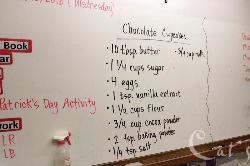 2012 (Wednesday)
Chocolate Cupcakes
• 10 tbsp. butter • 3/4 cup milk
• 1 1/4 cups sugar
• 4 eggs
• 1 tsp. vanilla extract
• 1 1/2 cups flour
• 3/4 cup cocoa powder
• 2 tsp. baking powder
• 1/4 tsp salt
Book
ar
Patrick's Day Activity
work
LR
LB
Car